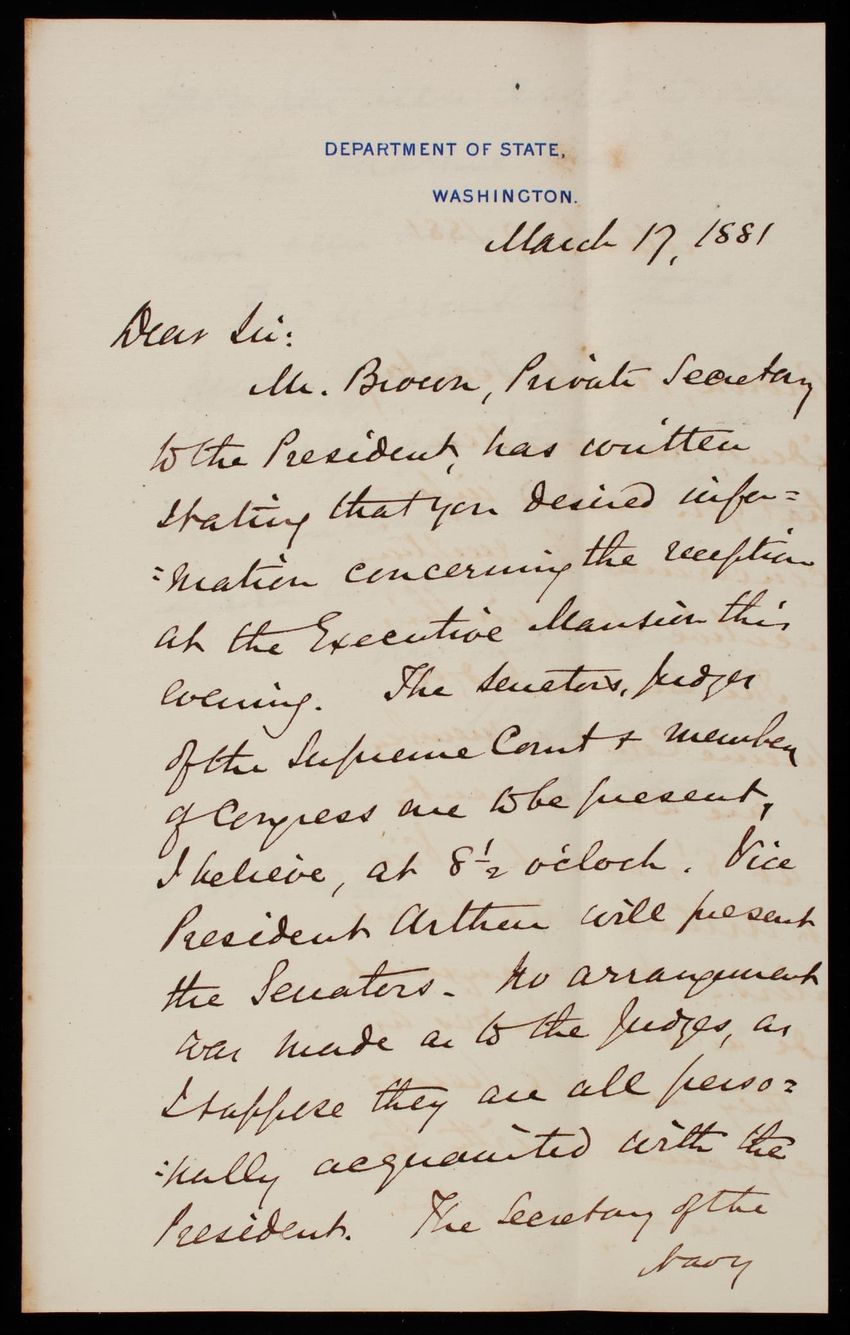 DEPARTMENT OF STATE,
WASHINGTON.
March 17, 1881
Dear Sir:
Mr. Brown, Private Secretary
to the President, has written
stating that you desired infor=
=mation concerning the reception
at the Executive Mansion this
evening. The Senators, Judges
of the Supreme Court & members
of Congress are to be present,
I believe, at 8 1/2 o'clock. Vice
President Arthur will present
the Senators. No arrangement
was made as to the Judges, as
I suppose they are all perso=
=nally acquainted with the
President. The Secretary of the
Navy